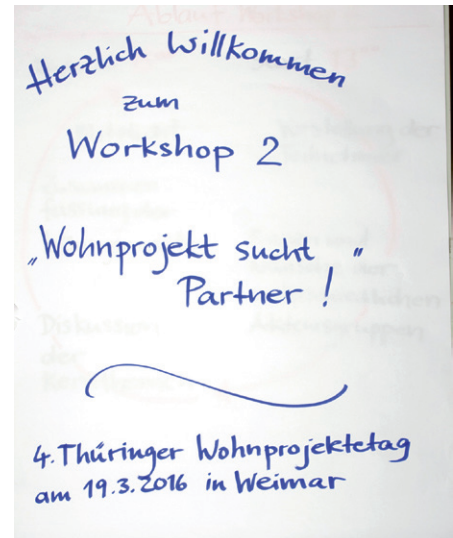 Herzlich Willkommen
zum
Workshop 2
„Wohnprojekt sucht "
Partner !
4. Thüringer Wohnprojektetag
am 19.3.2016 in Weimar